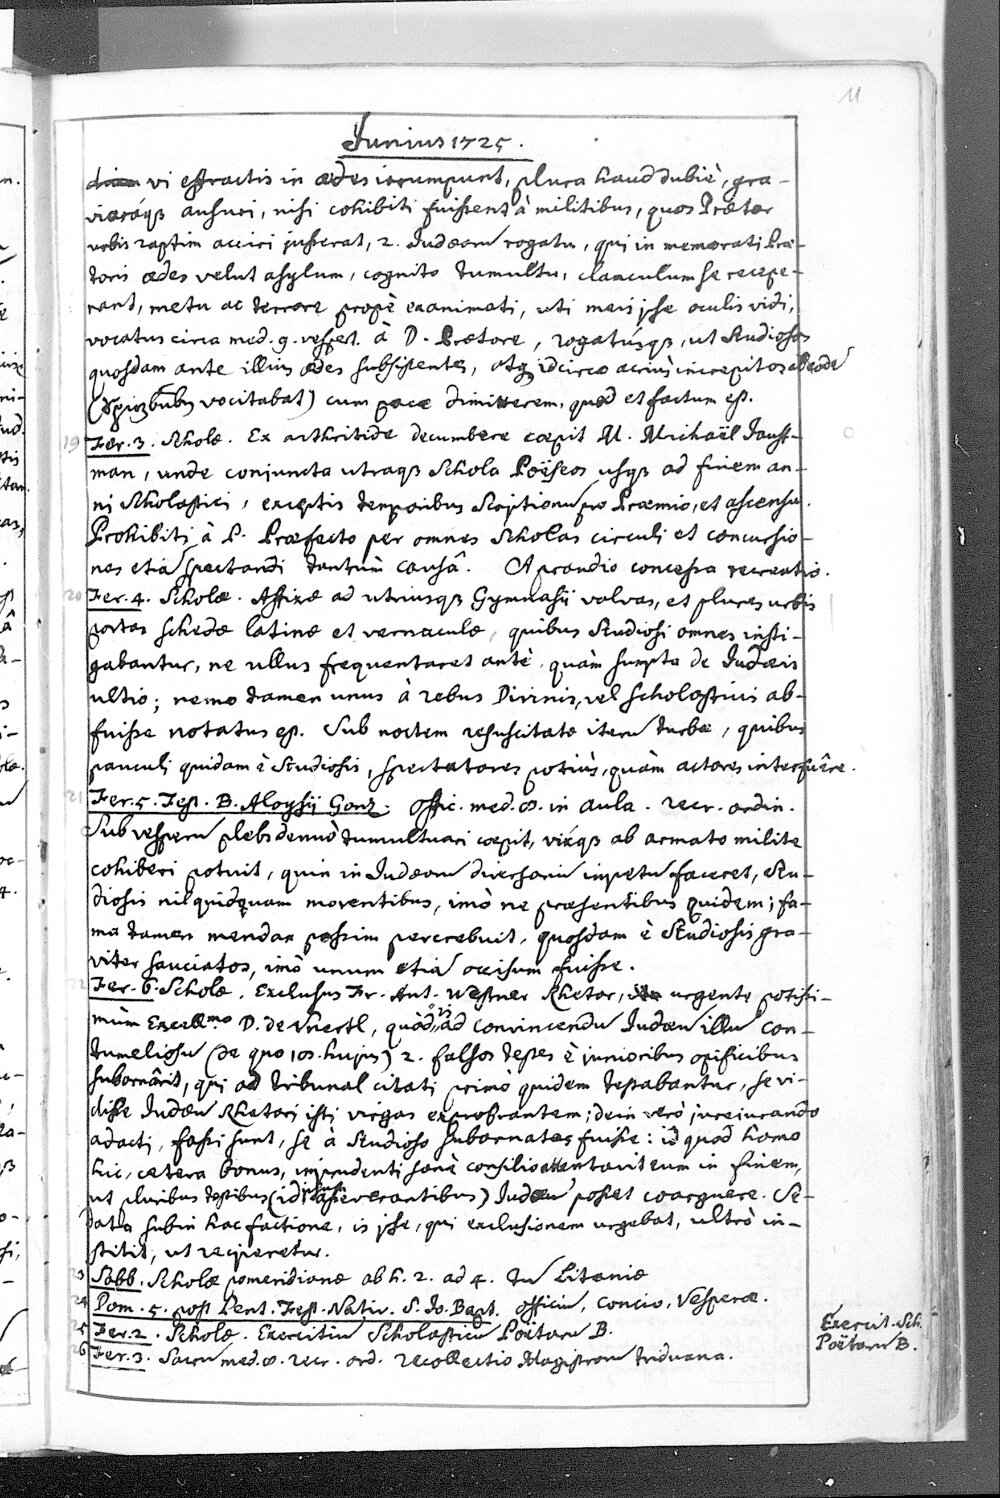 11
Junius 1725.
vi effractis in ædes irrumpunt, plura haud dubiè, gra-
vioráq3 ausuri, nisi cohibiti fuissent à militibus, quos Prætor
urbis raptim acciri jusserat, 2. Judæorũ rogatu, qui in memorati Præ-
toris ædes velut asylum, cognito tumultu, clanculum se recepe-
rant, metu ac terrore propè exanimati, uti meis ipse oculis vidi,
vocatus circa med. 9. vespert. à D. Prætore, rogatúsq3, ut Studiosos
quosdam ante illius ædes subsistentes, atq3 idcirco acriùs increpitos ab eode
vocitabat) cum pace dimitterem, quod et factum est.
19 Fer. 3. Scholæ. Ex arthritide decumbere cœpit M. Michaël Faust-
man, unde conjuncta utraq3 Schola Poëseos usq3 ad finem an-
ni Scholastici, exceptis temporibus Scriptionũ pro Præmio, et ascensu.
Prohibiti à P. Præfecto per omnes Scholas circuli et concursio-
nes etiã spectandi tantùm causâ. A prandio concessa recreatio.
20 Fer. 4. Scholæ. Affixæ ad utriusq3 Gymnasii valvas, et plures urbis
portas schedæ latinæ et vernaculæ, quibus Studiosi omnes insti-
gabantur, ne ullus frequentaret antè, quàm sumpta de Judæis
ultio; nemo tamen unus à rebus Divinis, vel scholasticis ab-
fuisse notatus est. Sub noctem resuscitatæ iterũ turbæ, quibus
pauculi quidam è Studiosis, spectatores potiùs, quàm actores interfuêre.
21 Fer. 5. Fest. B. Aloysii Gonz. Offic. med. 8. in aula. recr. ordin.
Sub vesperũ plebs denuò tumultuari cœpit, vixq3 ab armato milite
cohiberi potuit, quin in Judæorũ diversoriũ impetũ faceret, Stu-
diosis nil quidquam moventibus, imò ne præsentibus quidem; fa-
ma tamen mendax passim percrebuit, quosdam è Studiosis gra-
viter sauciatos, imò unum etiã occisum fuisse.
22 Fer. 6. Scholæ. Exclusus Fr. Ant. Westner Rhetor, urgente potissi-
mùm Excell.mo D. de Vnertl, quòd, ad convincendũ Judæũ illũ con-
tumeliosũ (de quo 10s. hujus) 2. falsos testes è junioribus opificibus
subornârit, qui ad tribunal citati primò quidem testabantur, se vi-
disse Judæũ Rhetori isti virgas exprobrantem; dein verò jurejurando
adacti, fassi sunt, se à Studioso subornatos fuisse: id quod homo
hic, cætera bonus, imprudenti sanè consilio attentavit eum in finem,
ut pluribus testibus (id ipsum asseverantibus) Judæũ posset coarguere. Se-
data subin hac factione, is ipse, qui exclusionem urgebat, ultrò in-
stitit, ut reciperetur.
23 Sabb. Scholæ pomeridianæ ab h. 2. ad 4. tũ Litaniæ
24 Dom. 5. post Pent. Fest. Nativ. S. Jo. Bapt. Officiũ, Concio, Vesperæ.
25 Fer. 2. Scholæ. Exercitiũ Scholasticũ Poëtarũ B.
Exercit. Sch.
Poëtarũ B.
26 Fer. 3. Sacrũ med. 8. recr. ord. recollectio Magistrorũ triduana.